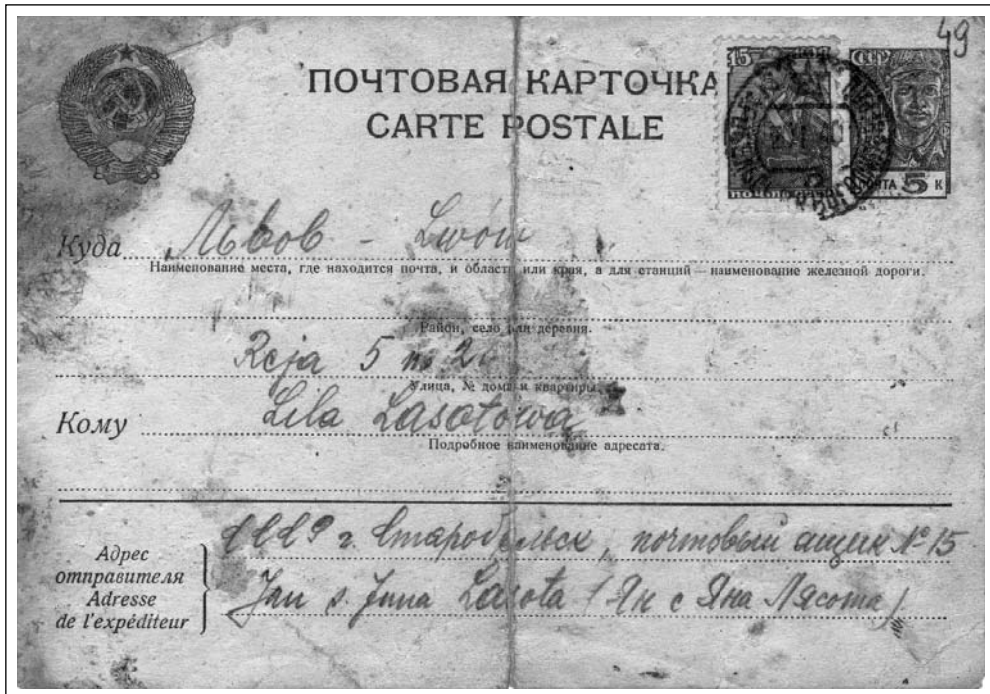 49
ПОЧТОВАЯ КАРТОЧКА
CARTE POSTALE
15
СССР
ПОЧТА 5 К
Куда Львов – Lwów
Наименование места, где находится почта, и области или края, а для станций — наименование железной дороги.
Район, село или деревня.
Reja 5 m 2
Улица, № дома и квартиры.
Кому Lila Lasotowa
Подробное наименование адресата.
Адрес отправителя
Adresse de l'expéditeur
г. Старобельск, почтовый ящик № 15
Jan s. Jana Lasota (Ян с Яна Лясота)